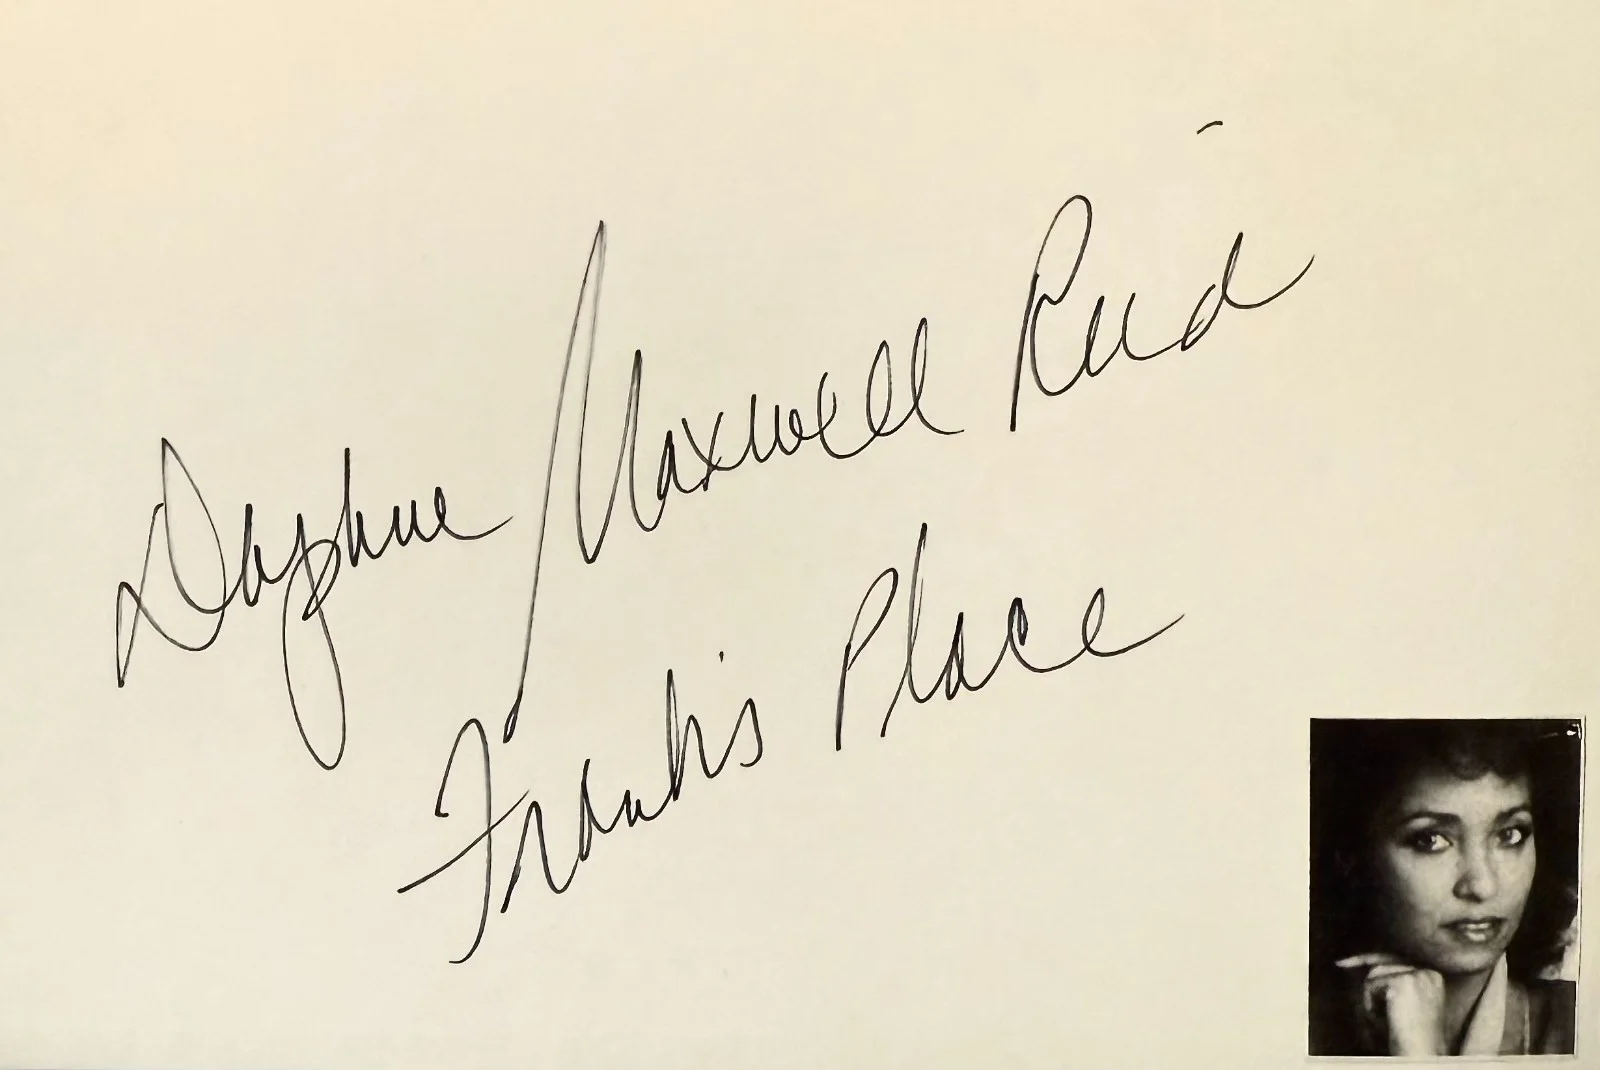 Daphne Maxwell Reid
Frank's Place